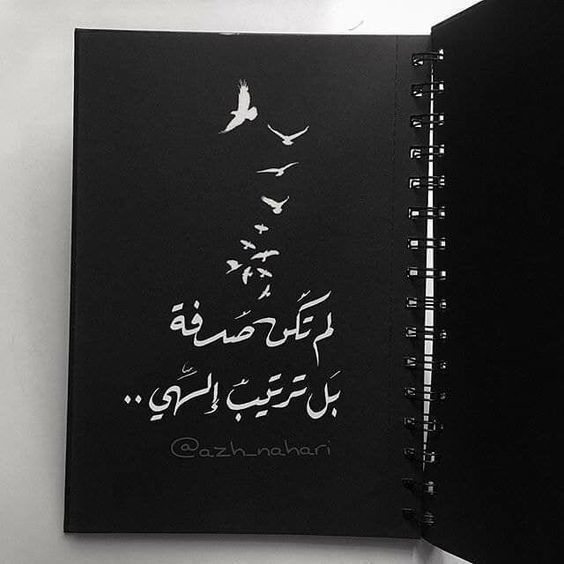 لم تكن صدفة
بَل ترتيبٌ إلهي ..
@azh_nahari